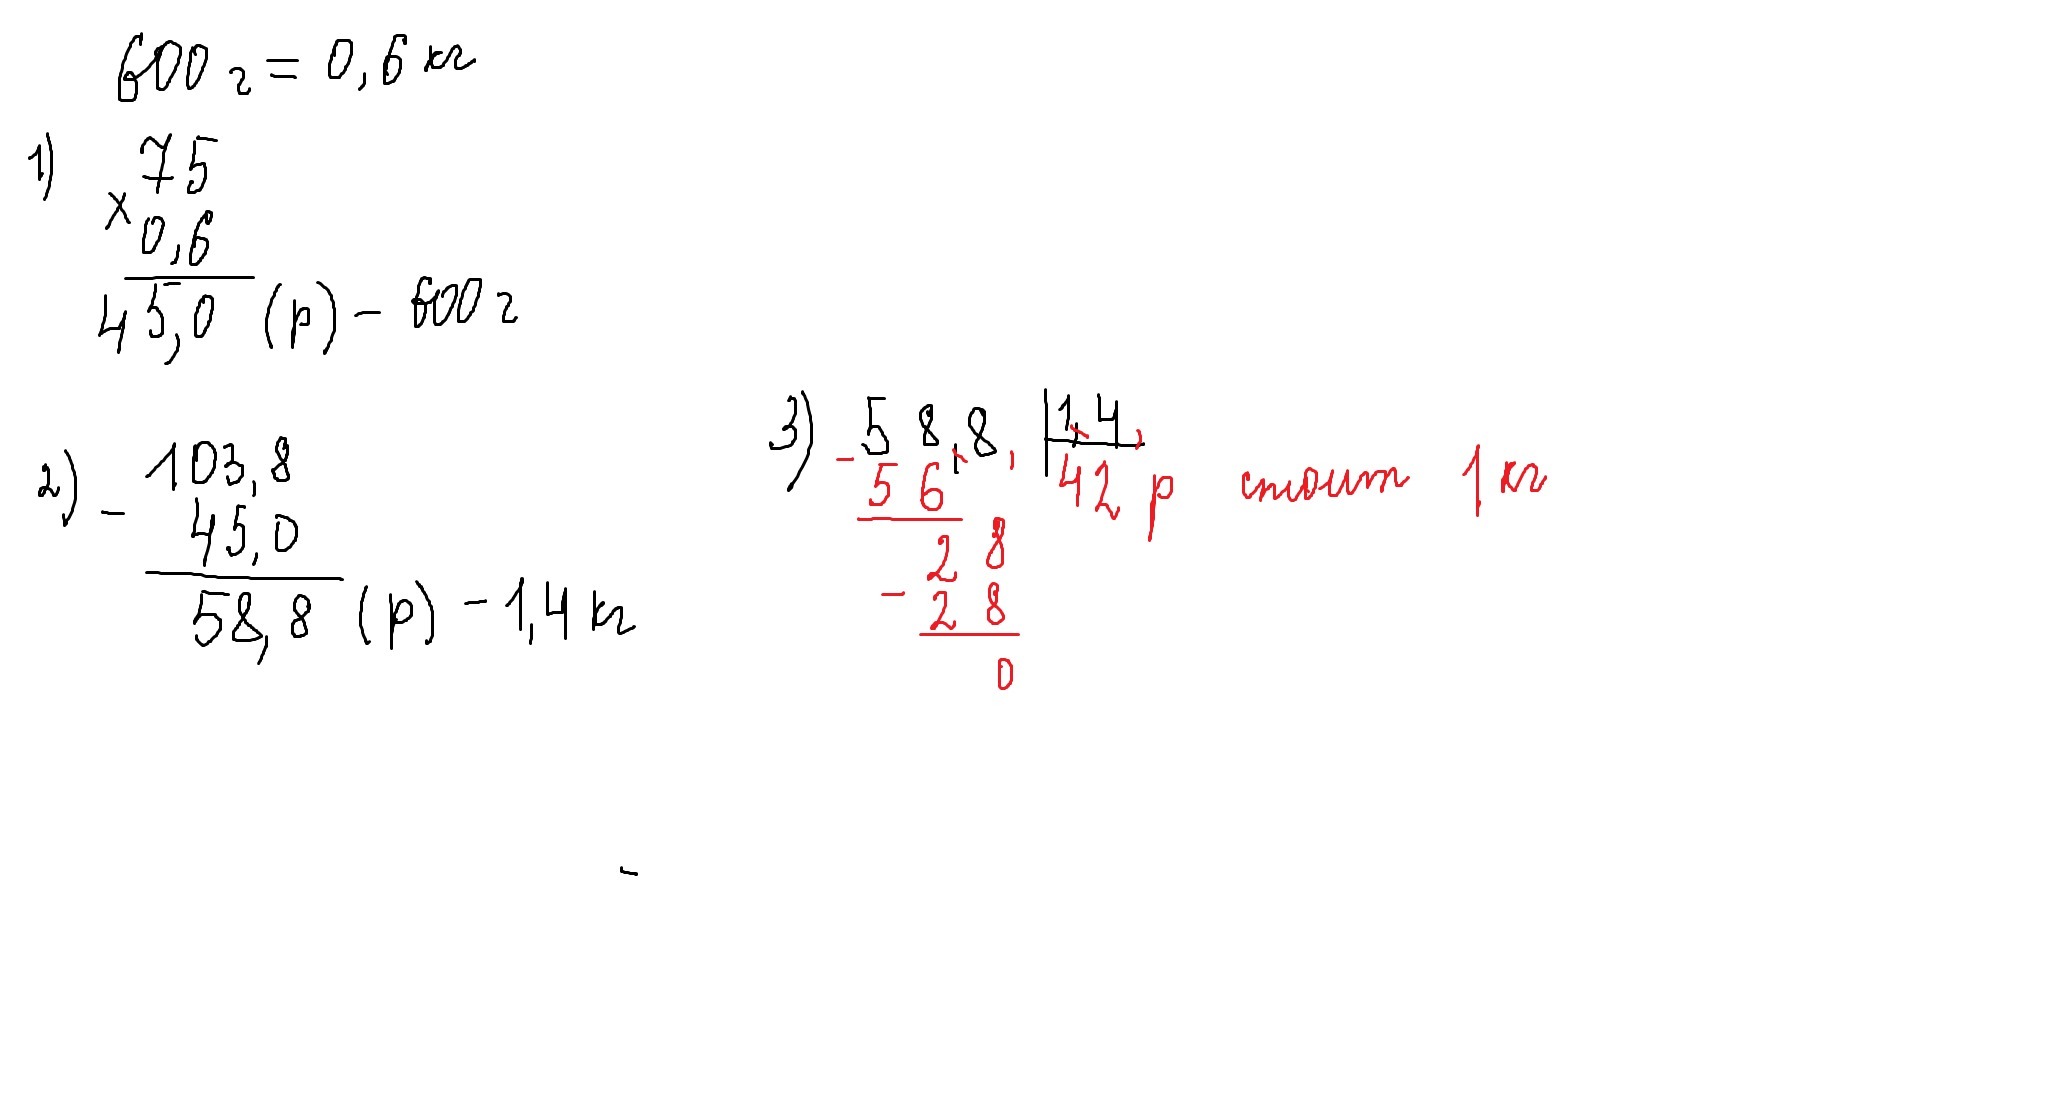 600 г = 0,6 кг
1) 75
× 0,6
45,0 (р) - 600 г
2) - 103,8
45,0
58,8 (р) - 1,4 кг
3) - 58,8, | 1,4,
56 42 р стоит 1 кг
28
- 28
0
-